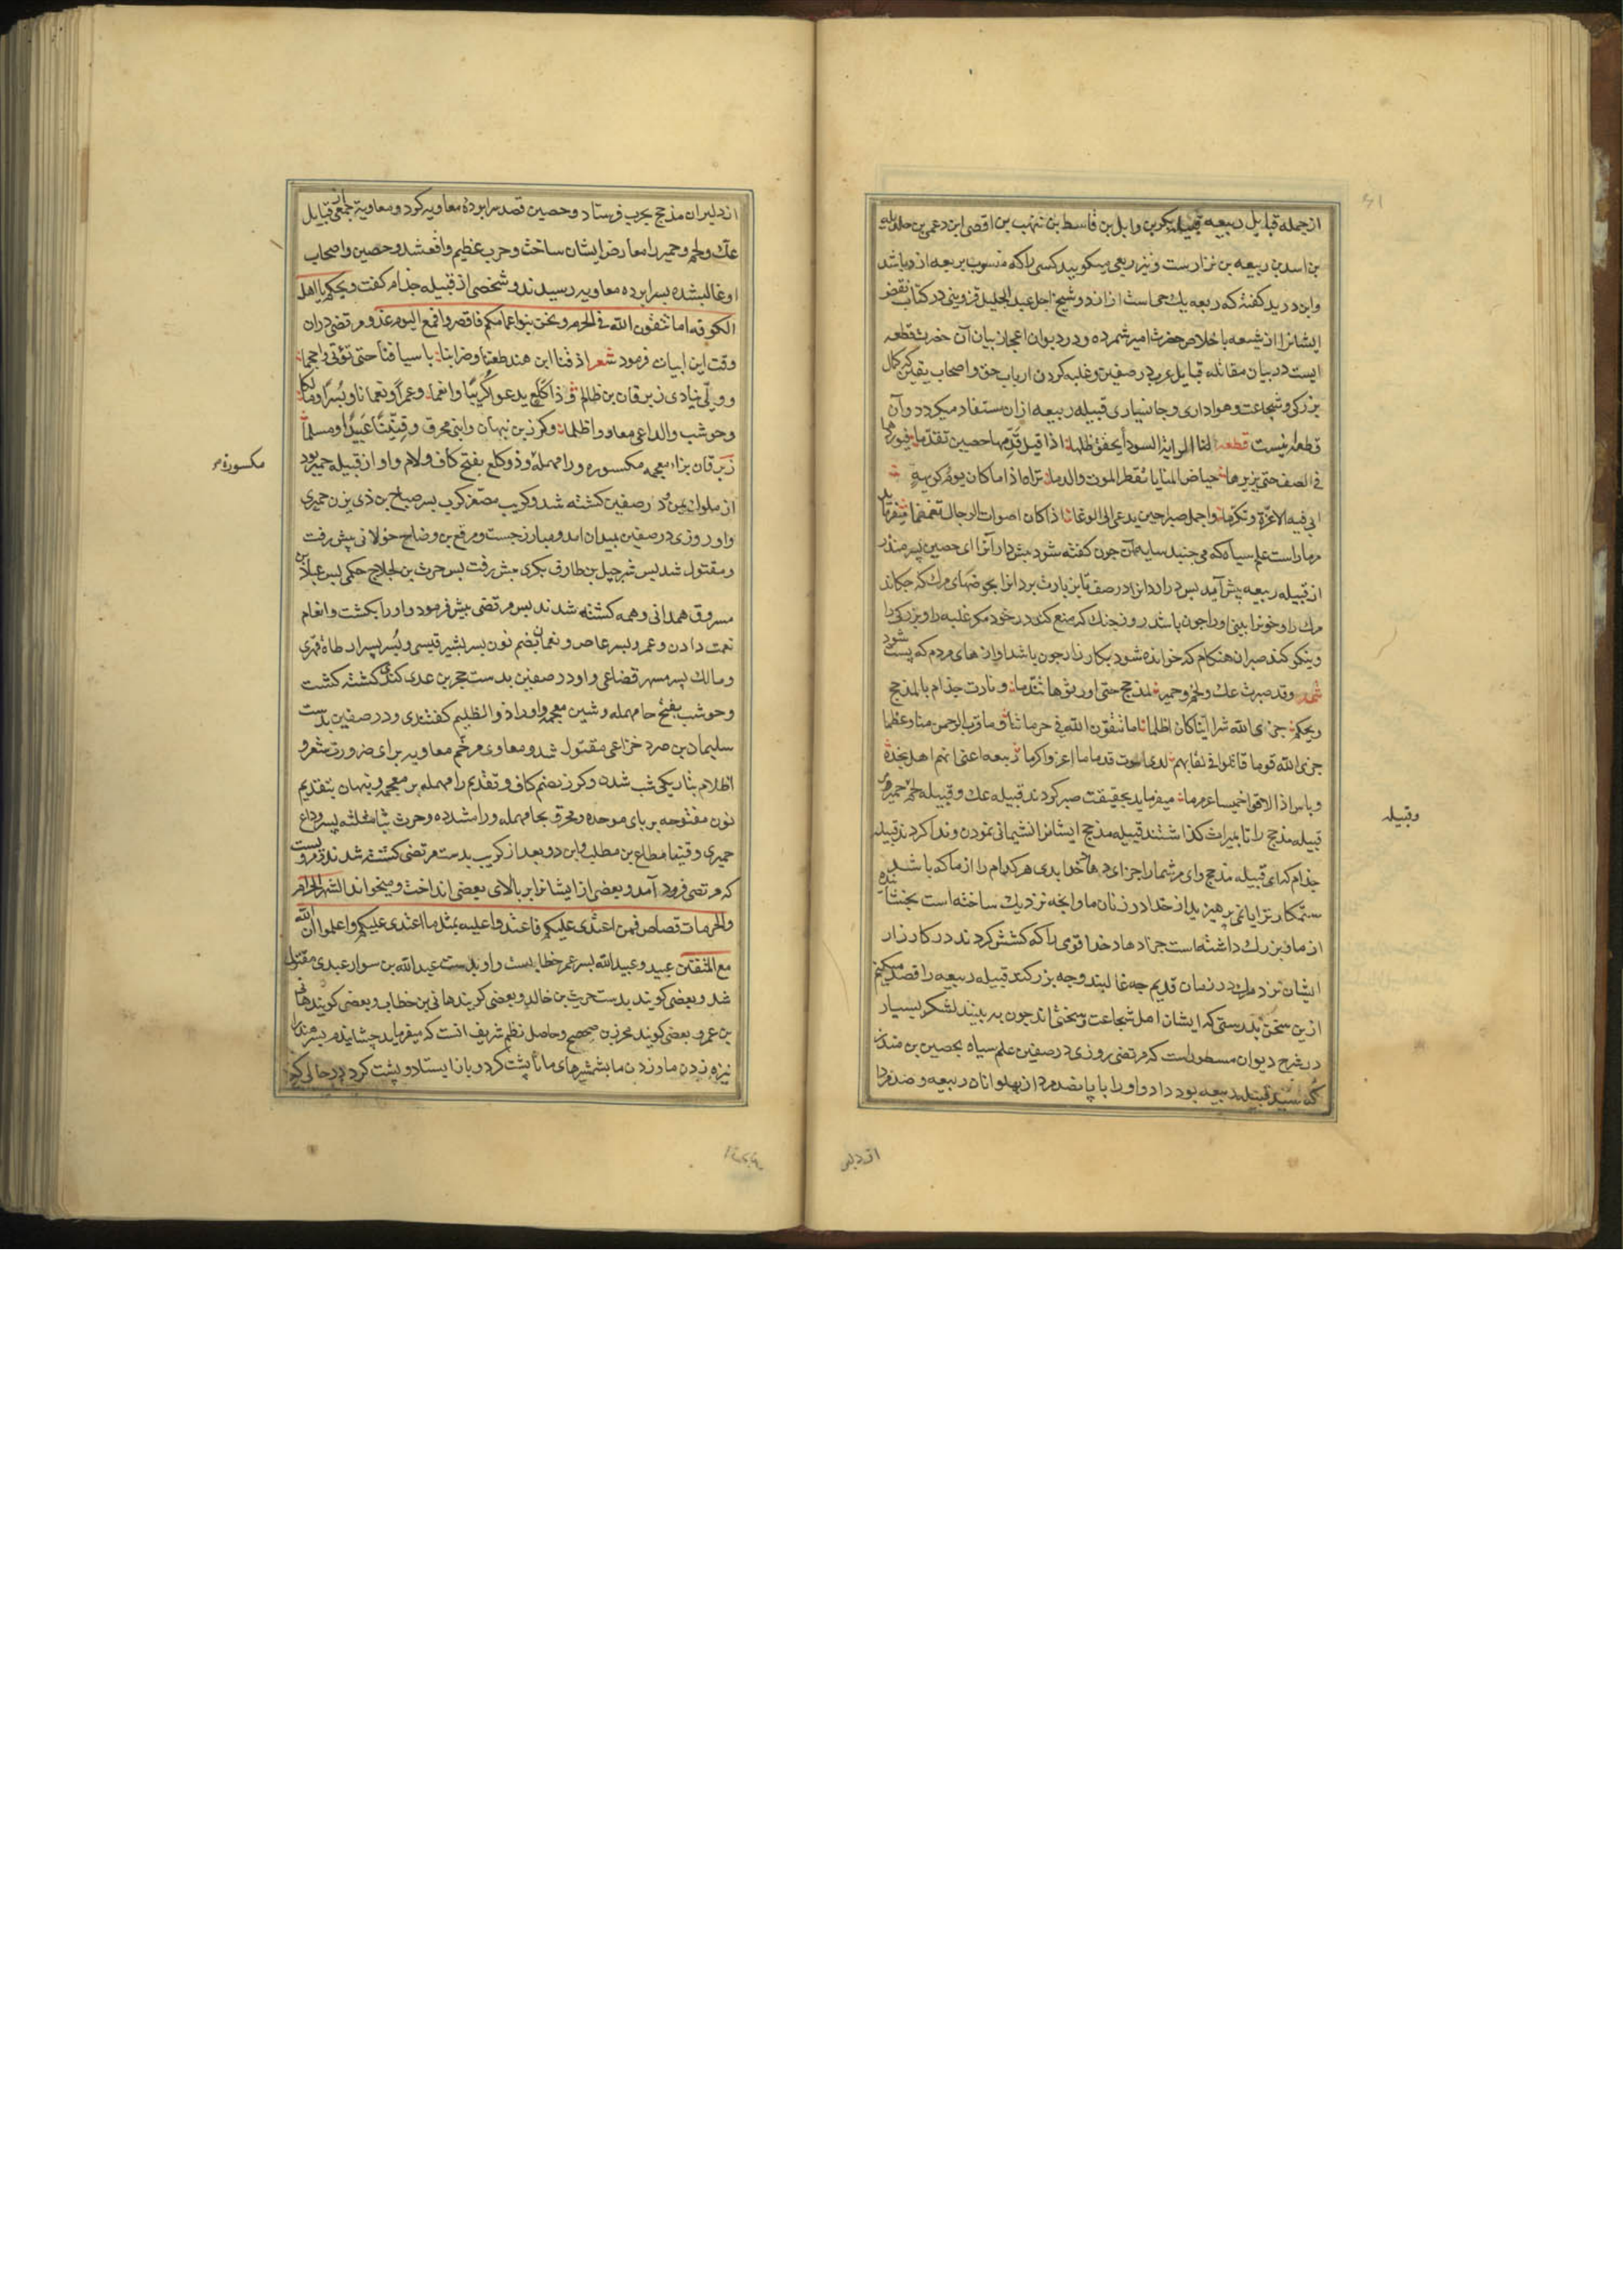 از جمله قبایل ربیعه قبیله بکر بن وایل بن قاسط بن نهب بن اقصی ابن دعمی بن جدیله
بن اسد بن ربیعه بن نزارست و نیز ربعی میکویند کسی را که منسوب بربیعه از وباشد
وابن درید کفته که ربعه یك حی است از ازد و شیخ اجل عبد الجلیل قزوینی در کتاب نقض
ایشانرا از شیعه باخلاص حضرت امیر شمرده و در دیوان اعجاز بیان آن حضرت قطعه
ایست در بیان مقاتله قبایل عرب در صفین و غلبه کردن ارباب حق و اصحاب یقین که کمال
بزرکی و شجاعت و هواداری و جانسپاری قبیله ربیعه از ان مستفاد میکردد و آن
قطعه اینست قطعه لنا الرایة السودا یخفق ظلها اذا قیل قدمها حصین تقدما فیوردها
فی الصف حتی یزیرها حیاض المنایا تقطر الموت والدما تراه اذا ما کان یوم کریهة
ابی فیه الا عزة و تکرما واجمل صبرا حین یدعی الی الوغا اذا کان اصوات الرجال تغمغما میفرماید
مر ما راست علم سیاه که می جنبد سایه آن چون کفته شود پیش دار آنرا ای حصین پسر منذر
از قبیله ربیعه پیش آید پس در ارد انرا در صف تا بزیارت برد انرا بحوضهای مرك که چکاند
مرك را و خونرا بینی او را چون باشد روز جنك که منع کند در خود مکر غلبه را و بزرکی را
و نیکو کند صبر ان هنکام که خوانده شود بکارزار چون باشد اوازهای مردم که پست شود
شعر وقد صبرت عك ولخم وحمیر لمذحج حتی اورثوها تندما ونادت جذام یالمذحج
ویحکم جزی الله شرا اینا کان اظلما اما تتقون الله فی حرماتنا وما قرب الرحمن منا وعظما
جزی الله قوما قاتلوا فی لقایهم لدی الموت قدما ما اعز واکرما ربیعه اعنی انهم اهل نجدة
وباس اذا لاقوا خمیسا عرمرما میفرماید بحقیقت صبر کردند قبیله عك و قبیله لخم و حمیر مر
قبیله مذحج را تا بمیراث کذاشتند قبیله مذحج ایشانرا پشیمانی نمودن و ندا کردند قبیله
جذام که ای قبیله مذحج وای مر شما را جزای دهاد خدا بدی هر کدام را از ما که باشد
ستمکارتر ایا نمی پرهیزید از خدا در زنان ما و انچه نزدیك ساخته است بخشاینده
از ما و بزرك داشته است جزا دهاد خدا قومی را که کشش کردند در کارزار
ایشان نزد مرك در زمان قدیم چه غالبند و چه بزرکند قبیله ربیعه را قصد میکنم
ازین سخن بدرستی که ایشان اهل شجاعت و سختی اند چون به بینند لشکر بسیار
در شرح دیوان مسطورست که مرتضی روزی در صفین علم سیاه بحصین بن منذر
که سید قبیله ربیعه بود داد و او را با پانصد مرد از پهلوانان ربیعه و صد مرد
وقبیله
از دلیر
از دلیران مذحج بحرب فرستاد و حصین قصد سرابرده معاویه کرد و معاویه جمعی از قبایل
عك ولخم و حمیر را معارض ایشان ساخت و حرب عظیم واقع شد و حصین و اصحاب
او غالب شده بسرابرده معاویه رسیدند و شخصی از قبیله جذام کفت ویحکم یا اهل
الکوفه اما تتقون الله فی الحرم ونحن بنو اعمامکم فاقصروا
وقت این ابیات فرمود شعر اذقنا ابن هند طعننا وضرابنا باسیافنا حتی تولی واحجما
وولی ینادی زبرقان بن ظالم وذا کلع یدعو کریبا وانعما وعمرا ونعمانا وبسرا ومالکا
وحوشب والداعی معاوی واظلما وکرز بن نبهان وابنی محرق وقینتا عبیدا ومسلما
زبرقان بزاء معجمه مکسوره و را مهمله و ذو کلع بفتح کاف و لام و او از قبیله حمیر بود
از ملوك یمن و در صفین کشته شد و کریب مصغر کرب پسر صباح بن ذی یزن حمیری
و او روزی در صفین بمیدان امد و مبارز جست و مرقع بن وضاح خولانی پیش رفت
و مقتول شد پس شرجیل بن طارق بکری پیش رفت پس حرث بن الجلاح حکمی پس عباد بن
مسروق همدانی و همه کشته شدند پس مرتضی پیش فرمود و او را بکشت و انعام
نعمت دادن و عمرو پسر عاص و نعمان بضم نون پسر بشیر قیسی و بسر پسر ارطاة فهری
و مالك پسر مسهر قضاعی و او در صفین بدست حجر بن عدی کندی کشته کشت
و حوشب بفتح حا مهمله و شین معجمه و او را ذو الظلیم کفتندی و در صفین بدست
سلیمان بن صرد خزاعی مقتول شد و معاوی مرخم معاویه برای ضرورت شعر و
اظلام بتاریکی شب شدن و کرز بضم کاف و تقدیم را مهمله بر معجمه و نبهان بتقدیم
نون مفتوحه بر بای موحده و محرق بحا مهمله و را مشدده و حرث بثا مثلثه پسر وداع
حمیری و قینعا مطاع بن مطلب و این دو بعد از کریب بدست مرتضی کشته شدند و مرویست
که مرتضی فرود آمد و بعضی از ایشانرا بر بالای بعضی انداخت و میخواند الشهر الحرام
والحرمات قصاص فمن اعتدی علیکم فاعتدوا علیه بمثل ما اعتدی علیکم واعلموا ان الله
مع المتقین عبید و عبید الله پسر عمر خطابست و او بدست عبد الله بن سوار عبدی مقتول
شد و بعضی کویند بدست حریث بن خالد و بعضی کویند هانی بن خطاب و بعضی کویند هانی
بن عمرو بعضی کویند محرز بن صحصح و حاصل نظم شریف انست که میفرماید چشاندیم پسر هند را
نیزه زدن ما و زدن ما بشمشیرهای ما تا پشت کرد و باز ایستاد و پشت کرد در حالی که
مکسوره